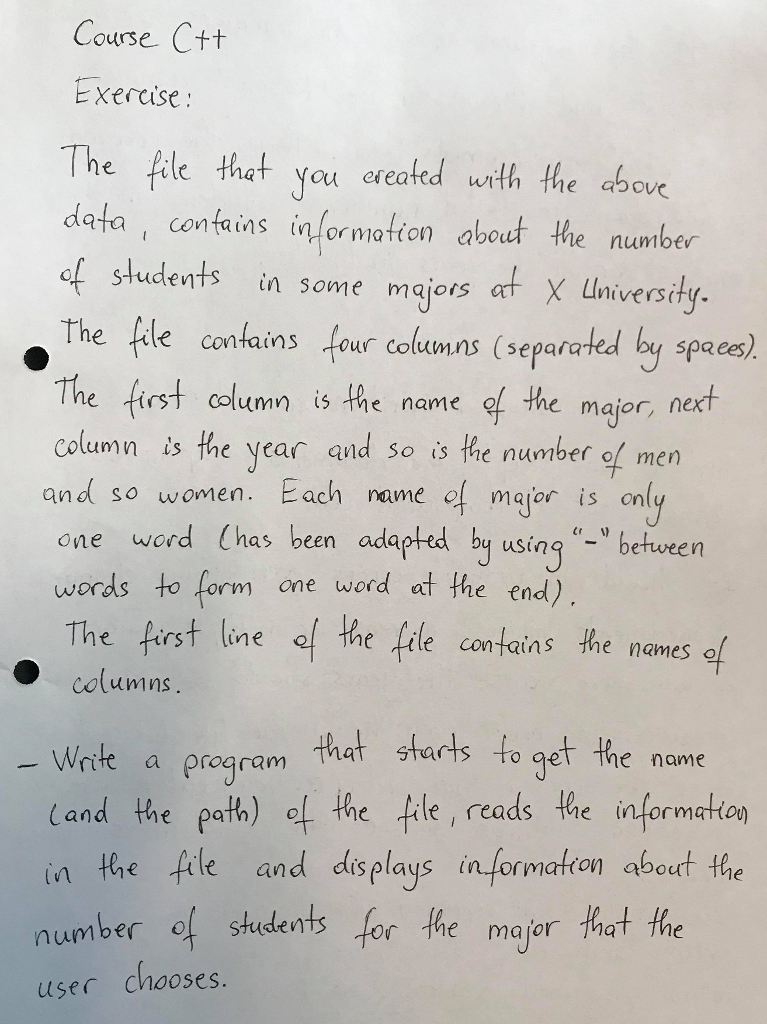 Course C++
Exercise:
The file that you created with the above
data, contains information about the number
of students in some majors at X University.
The file contains four columns (separated by spaces).
The first column is the name of the major, next
column is the year and so is the number of men
and so women. Each name of major is only
one word (has been adapted by using "-" between
words to form one word at the end).
The first line of the file contains the names of
columns.
- Write a program that starts to get the name
(and the path) of the file, reads the information
in the file and displays information about the
number of students for the major that the
user chooses.